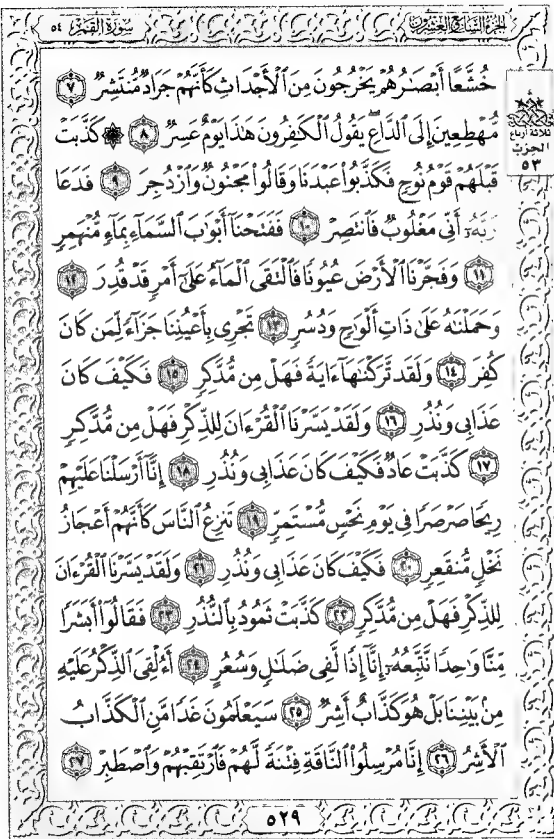 سورة القمر ٥٤
الجزء السابع والعشرون
خُشَّعًا أَبْصَٰرُهُمْ يَخْرُجُونَ مِنَ ٱلْأَجْدَاثِ كَأَنَّهُمْ جَرَادٌ مُّنتَشِرٌ ٧
مُّهْطِعِينَ إِلَى ٱلدَّاعِ يَقُولُ ٱلْكَٰفِرُونَ هَٰذَا يَوْمٌ عَسِرٌ ٨ ۞ كَذَّبَتْ
قَبْلَهُمْ قَوْمُ نُوحٍ فَكَذَّبُوا۟ عَبْدَنَا وَقَالُوا۟ مَجْنُونٌ وَٱزْدُجِرَ ٩ فَدَعَا
رَبَّهُۥٓ أَنِّى مَغْلُوبٌ فَٱنتَصِرْ ١٠ فَفَتَحْنَآ أَبْوَٰبَ ٱلسَّمَآءِ بِمَآءٍ مُّنْهَمِرٍ
١١ وَفَجَّرْنَا ٱلْأَرْضَ عُيُونًا فَٱلْتَقَى ٱلْمَآءُ عَلَىٰٓ أَمْرٍ قَدْ قُدِرَ ١٢
وَحَمَلْنَٰهُ عَلَىٰ ذَاتِ أَلْوَٰحٍ وَدُسُرٍ ١٣ تَجْرِى بِأَعْيُنِنَا جَزَآءً لِّمَن كَانَ
كُفِرَ ١٤ وَلَقَد تَّرَكْنَٰهَآ ءَايَةً فَهَلْ مِن مُّدَّكِرٍ ١٥ فَكَيْفَ كَانَ
عَذَابِى وَنُذُرِ ١٦ وَلَقَدْ يَسَّرْنَا ٱلْقُرْءَانَ لِلذِّكْرِ فَهَلْ مِن مُّدَّكِرٍ
١٧ كَذَّبَتْ عَادٌ فَكَيْفَ كَانَ عَذَابِى وَنُذُرِ ١٨ إِنَّآ أَرْسَلْنَا عَلَيْهِمْ
رِيحًا صَرْصَرًا فِى يَوْمِ نَحْسٍ مُّسْتَمِرٍّ ١٩ تَنزِعُ ٱلنَّاسَ كَأَنَّهُمْ أَعْجَازُ
نَخْلٍ مُّنقَعِرٍ ٢٠ فَكَيْفَ كَانَ عَذَابِى وَنُذُرِ ٢١ وَلَقَدْ يَسَّرْنَا ٱلْقُرْءَانَ
لِلذِّكْرِ فَهَلْ مِن مُّدَّكِرٍ ٢٢ كَذَّبَتْ ثَمُودُ بِٱلنُّذُرِ ٢٣ فَقَالُوٓا۟ أَبَشَرًا
مِّنَّا وَٰحِدًا نَّتَّبِعُهُۥٓ إِنَّآ إِذًا لَّفِى ضَلَٰلٍ وَسُعُرٍ ٢٤ أَءُلْقِىَ ٱلذِّكْرُ عَلَيْهِ
مِنۢ بَيْنِنَا بَلْ هُوَ كَذَّابٌ أَشِرٌ ٢٥ سَيَعْلَمُونَ غَدًا مَّنِ ٱلْكَذَّابُ
ٱلْأَشِرُ ٢٦ إِنَّا مُرْسِلُوا۟ ٱلنَّاقَةِ فِتْنَةً لَّهُمْ فَٱرْتَقِبْهُمْ وَٱصْطَبِرْ ٢٧
ثلاثة أرباع
الحزب
٥٣
٥٢٩